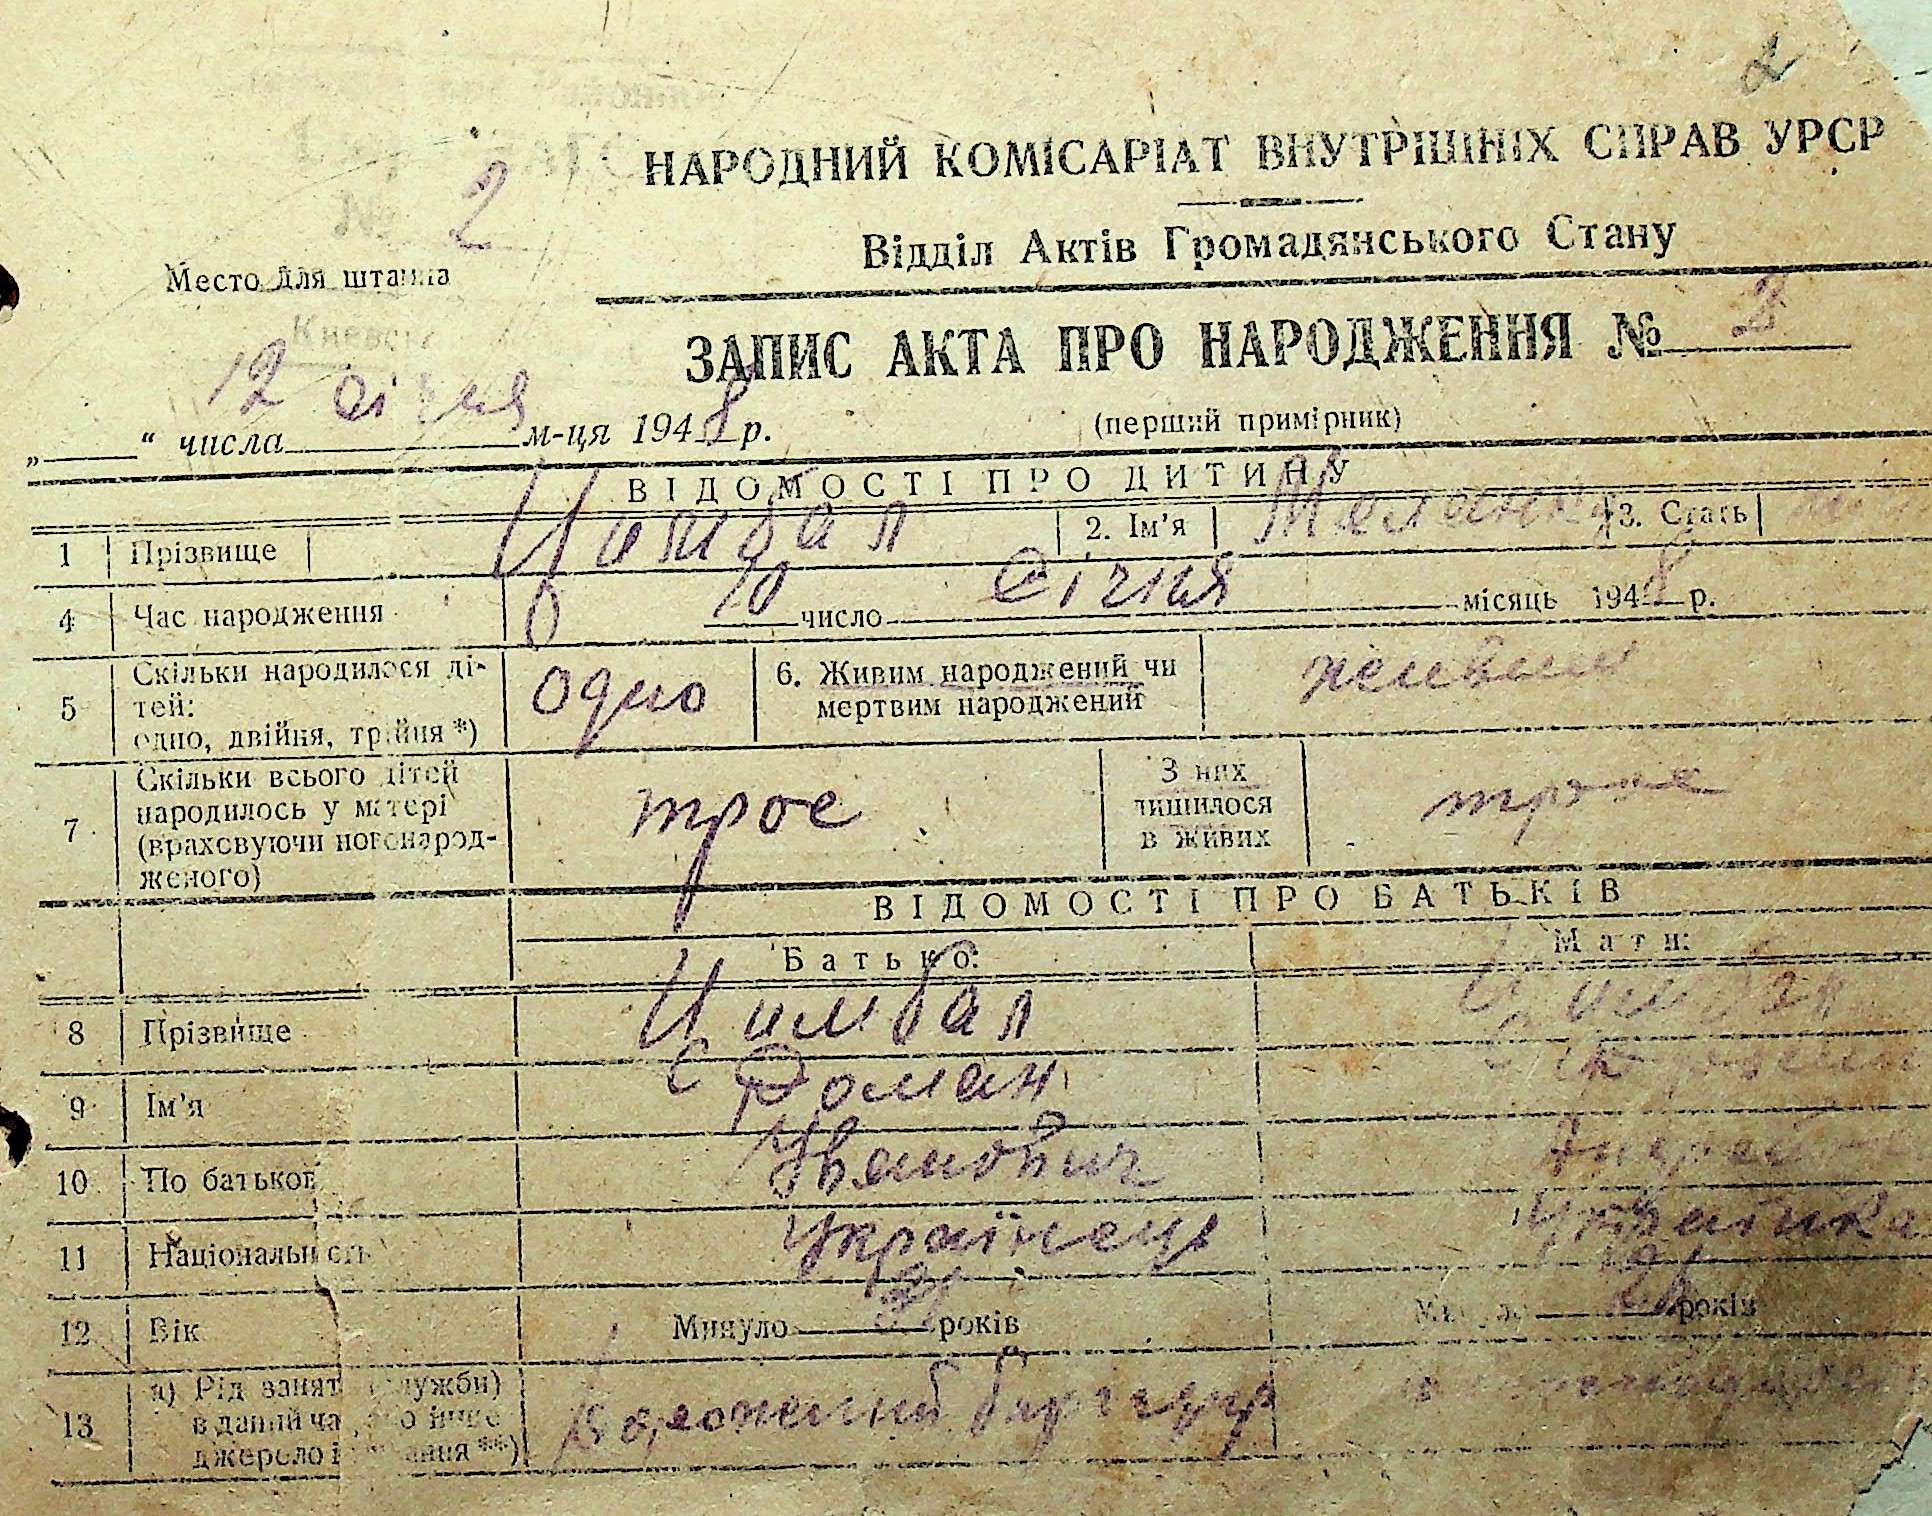 2
НАРОДНИЙ КОМІСАРІАТ ВНУТРІШНІХ СПРАВ УРСР
№ 2
Відділ Актів Громадянського Стану
Место для штампа
ЗАПИС АКТА ПРО НАРОДЖЕННЯ № 2
12 січня
„ “ числа м-ця 1948 р.
(перший примірник)
ВІДОМОСТІ ПРО ДИТИНУ
1 Прізвище Цимбал 2. Ім'я Меланка 3. Стать
4 Час народження 10 число Січня місяць 1948 р.
5 Скільки народилося ді-
тей:
одно, двійня, трійня *)
одно
6. Живим народжений чи
мертвим народжений
живым
7 Скільки всього дітей
народилось у матері
(враховуючи новонарод-
женого)
трое
З них
лишилося
в живих
трое
ВІДОМОСТІ ПРО БАТЬКІВ
Батько: Мати:
8 Прізвище Цимбал Цимбал
9 Ім'я Роман
10 По батькові Иванович
11 Національність Українець Українка
12 Вік Минуло років Минуло років
13 а) Рід занять (служби)
в даний час, або інше
джерело існування **)